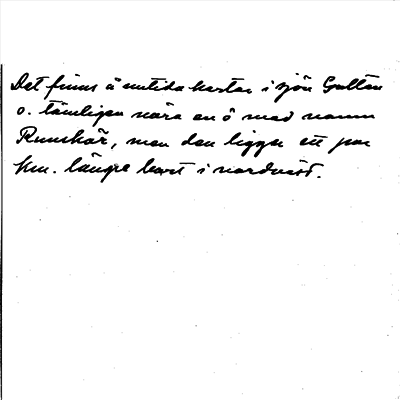 Det finns å nutida kartor i sjön Gultan
o. tämligen nära en ö med namn
Runskär, men den ligger ett par
km. längre bort i nordväst.